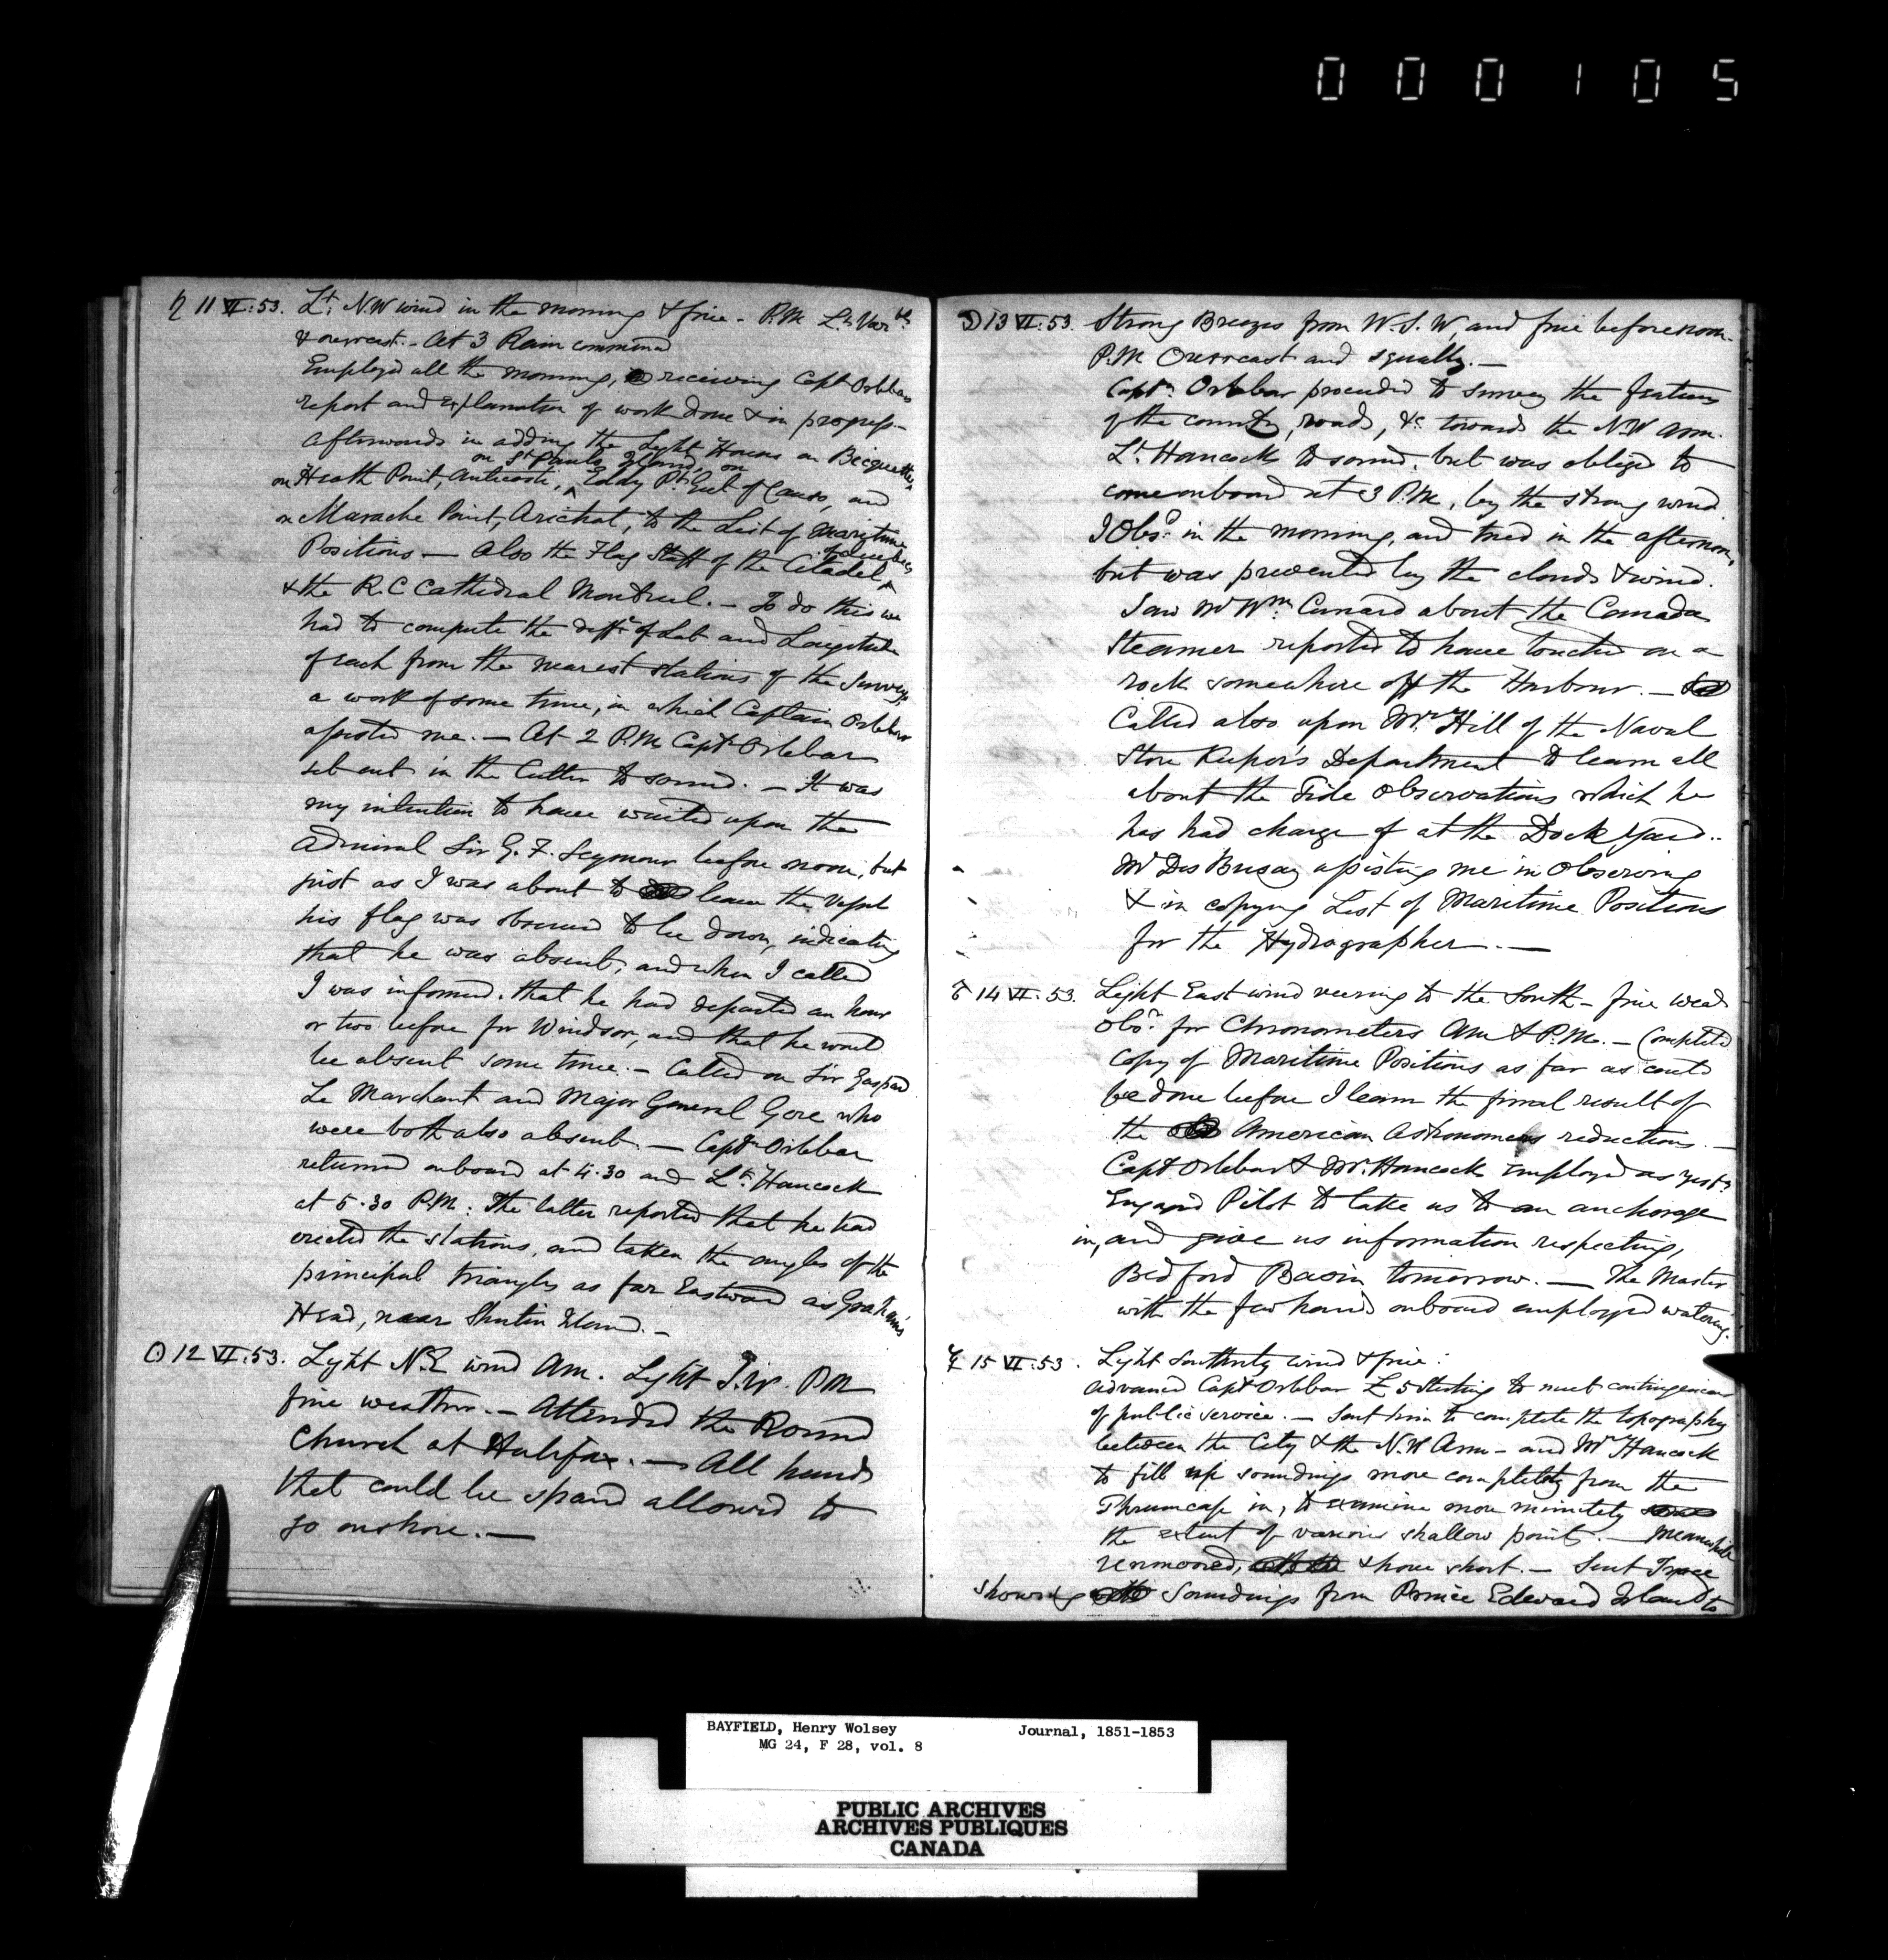 000105
♄ 11 VI:53. Lt. N.W wind in the morning & fine - P.M Lt. Varble
& overcast. - At 3 Rain commenced
Employed all the morning, receiving Capt Orlebars
report and explanation of work done & in progress -
afterwards in adding the Light Houses on Bicquette,
on St Pauls Island, on
on Heath Point, Anticosti, ^ Eddy Pt. Gut of Canso, and
on Marache Point, Arichat, to the List of Maritime
Quebec
Positions — Also the Flag Staff of the Citadel ^
& the R.C Cathedral Montreal. - To do this we
had to compute the diffce of Lat and Longitude
of each from the nearest stations of the Survey,
a work of some time, in which Captain Orlebar
assisted me. — At 2 P.M. Captn Orlebar
set out in the Cutter to sound. — It was
my intention to have waited upon the
Admiral Sir G. F. Seymour before noon, but
just as I was about to leave the vessel
his flag was observed to be down, indicating
that he was absent, and when I called
I was informed, that he had departed an hour
or two before for Windsor, and that he would
be absent some time. - Called on Sir Gaspard
Le Marchant and Major General Gore who
were both also absent. — Captn Orlebar
returned onboard at 4.30 and Lt. Hancock
at 5.30 P.M: The latter reported that he had
erected the stations, and taken the angles of the
principal triangles as far Eastward as Graham's
Head, near Shutin Island. -
☉ 12 VI:53. Light N.E wind Am. Light S.W. P.M
fine weather. - Attended the Round
Church at Halifax. — All hands
that could be spared allowed to
go onshore. —
☽ 13 VI:53. Strong Breezes from W.S.W, and fine before noon.
P.M Overcast and squally. —
Captn. Orlebar proceeded to survey the features
of the country, roads, &c towards the N.W Arm.
Lt. Hancock to sound, but was obliged to
come onboard at 3 P.M, by the strong wind.
I Obsd. in the morning, and tried in the afternoon,
but was prevented by the clouds & wind.
Saw Mr Wm. Cunard about the Canada
Steamer reported to have touched on a
rock somewhere off the Harbour. —
Called also upon Mr. Hill of the Naval
Store Keeper's Department to learn all
about the Tide Observations which he
has had charge of at the Dock Yard..
Mr Des Brisay assisting me in Observing
& in copying List of Maritime Positions
for the Hydrographer. —
♂ 14 VI:53. Light East wind veering to the South - fine wear
Obsd. for Chronometers Am & P.M. - Completed
copy of Maritime Positions as far as could
be done before I learn the final result of
the American Astronomers reductions. —
Capt Orlebar & Mr. Hancock employed as yesty
Engaged Pilot to take us to an anchorage
in, and give us information respecting,
Bedford Basin tomorrow. — The Master
with the few hands onboard employed watering.
☿ 15 VI:53. Light Southerly wind & fine:
Advanced Captn Orlebar £5 Sterling to meet contingencies
of public service. — Sent him to complete the topography
between the City & the N.W Arm - and Mr Hancock
to fill up soundings more completely from the
Thrumcap in, to examine more minutely
the extent of various shallow points. — Meanwhile
unmoored, & hove short. — Sent Trace
showing Soundings from Prince Edward Island to
BAYFIELD, Henry Wolsey Journal, 1851-1853
MG 24, F 28, vol. 8
PUBLIC ARCHIVES
ARCHIVES PUBLIQUES
CANADA